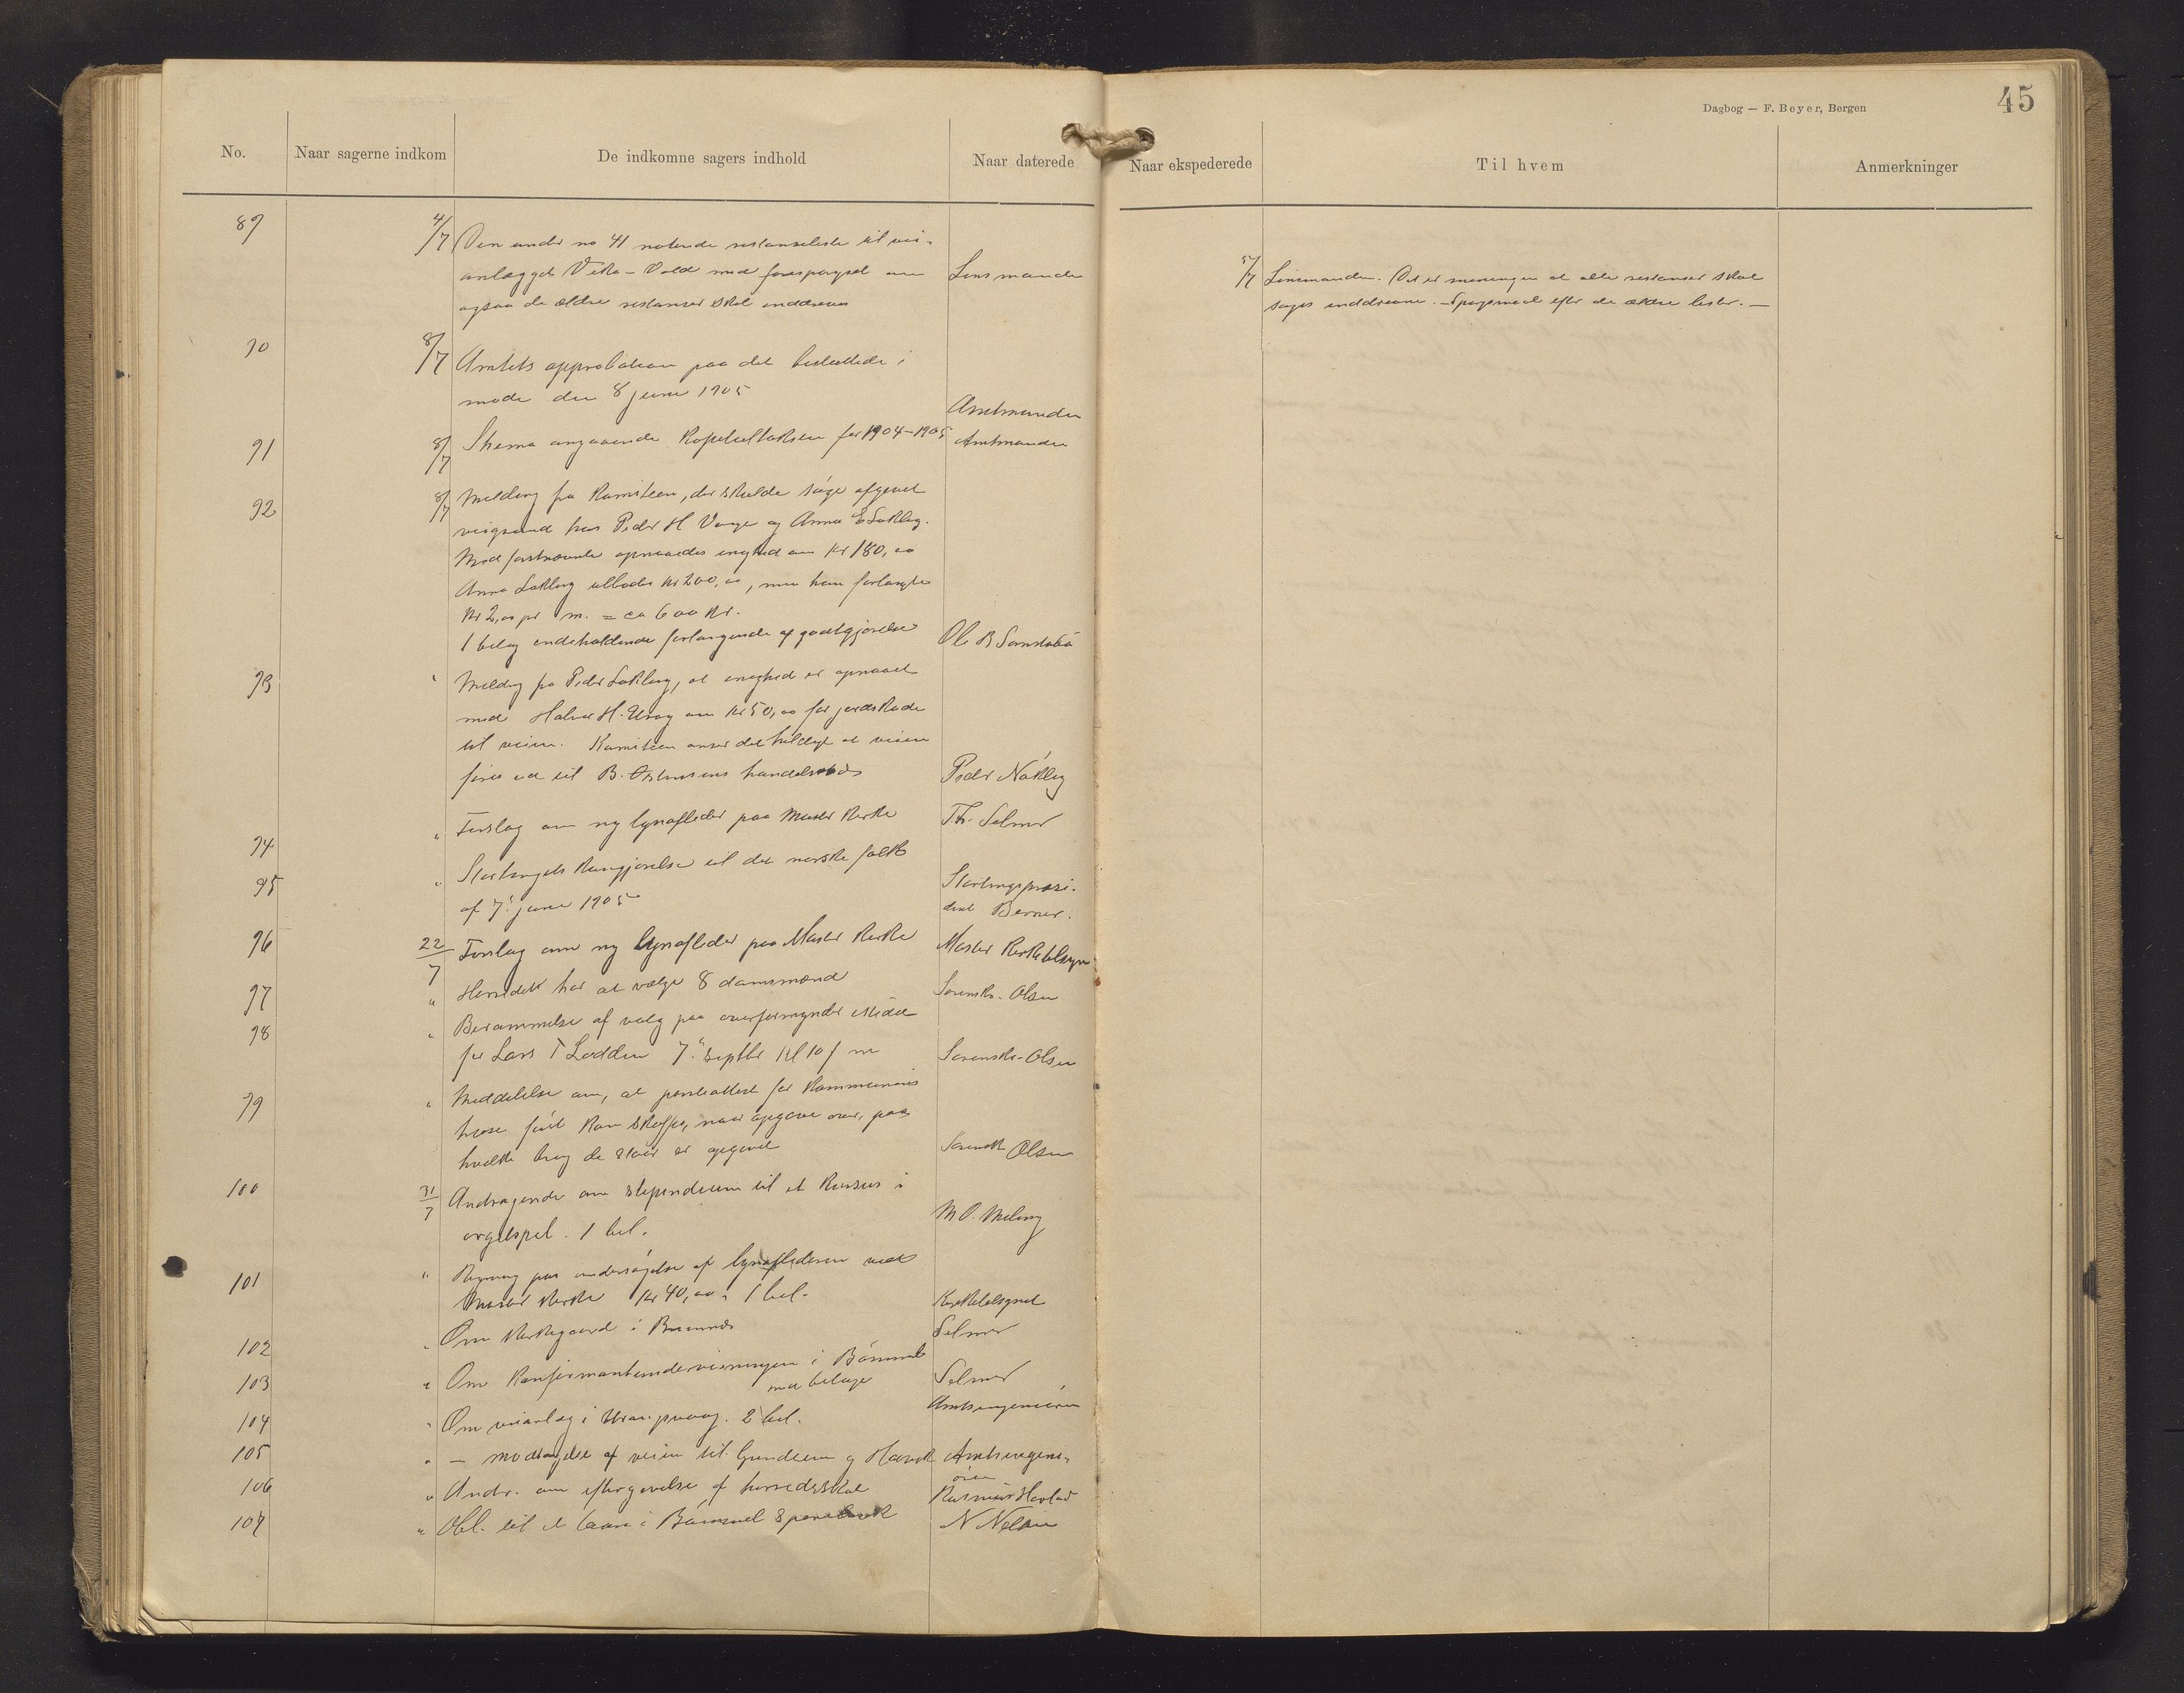 Dagbog — F. Beyer, Bergen
45
No. Naar sagerne indkom De indkomne sagers indhold Naar daterede Naar ekspederede Til hvem Anmerkninger
89 4/7 Den under no 41 noterede restanseliste til vei-
anlægget Vika - Vold med forespørgsel om Lensmanden
ogsaa de ældre restanser skal inddrives
5/7 Lensmanden. Det er meningen at alle restanser skal
søges inddrevne. - Spøgsmaal efter de ældre lister. —
90 8/7 Amtets approbation paa det besluttede i
møde den 8 juni 1905 Amtmanden
91 8/7 Skema angaaende Kapitaltaksten for 1904-1905 Amtmanden
92 8/7 Melding fra Komiteen, der skulde søge afgivet
veigrund hos Peder H Vaage og Anna E Løkling.
Med førstnævnte opnaaedes enighed om kr 180,00
Anna Løkling tilbødes kr 200,00, men hun forlangte
kr 2,00 pr m. = ca 600 kr.
1 bilag indeholdende forlangende af godtgjørelse Ole B
93 " Melding fra Peder Løkling, at enighed er opnaaet
med Halvor H. Urang om kr 50,00 for jordskade
til veien. Komiteen anser det heldigt at veien
føres ud til B. handelssted Peder Nøkling
94 " Forslag om ny lynafleder paa Moster kirke Th. Selmer
95 " Stortingets kungjørelse til det norske folk
af 7. juni 1905 Stortingspræsi-
dent Berner.
96 22/7 Forslag om ny lynafleder paa Moster kirke Moster Kirketilsyn
97 " Herredet har at vælge 8 domsmænd Sorenskr. Olsen
98 " Berammelse af valg paa overformynder istedet
for Lars T Lodden 7. septbr kl 10 f m Sorenskr. Olsen
99 " Meddelelse om, at panteattest for kommunens
huse først kan skaffes, naar opgave over, paa
hvilke brug de staar er opgivet Sorenskr Olsen
100 31/7 Andragende om stipendium til et kursus i
orgelspil. 1 bil. M O. Meling
101 " Regning paa undersøgelse af lynaflederen ved
Moster kirke kr 40,00. 1 bil. Kirketilsynet
102 " Om kirkegaard i Bremnes Selmer
103 " Om konfirmantundervisningen i Bømmel
med bilage Selmer
104 " Om veianlæg i Urangsvaag. 2 bil. Amtsingeniøren
105 " — modtagelse af veien til Grindeim og Hævik Amtsingeni-
øren
106 " Andr. om eftergivelse af herredsskat Rasmus
107 " Obl. til et laan i Bømmel Sparebank N Nelson